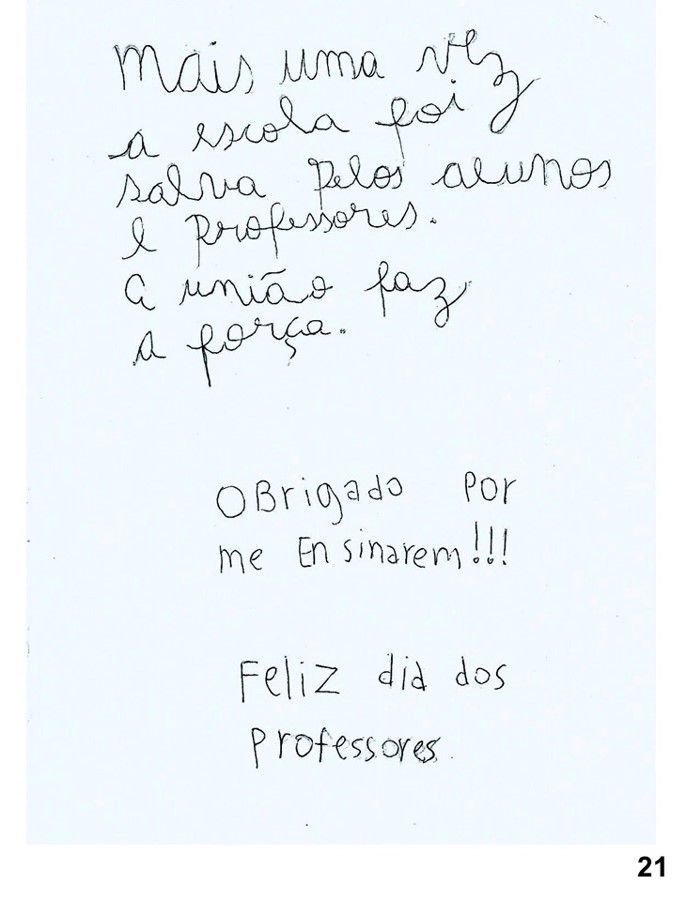 Mais uma vez
a escola foi
salva pelos alunos
e professores.
A união faz
a força.
OBrigado Por
me Ensinarem!!!
Feliz dia dos
Professores.
21